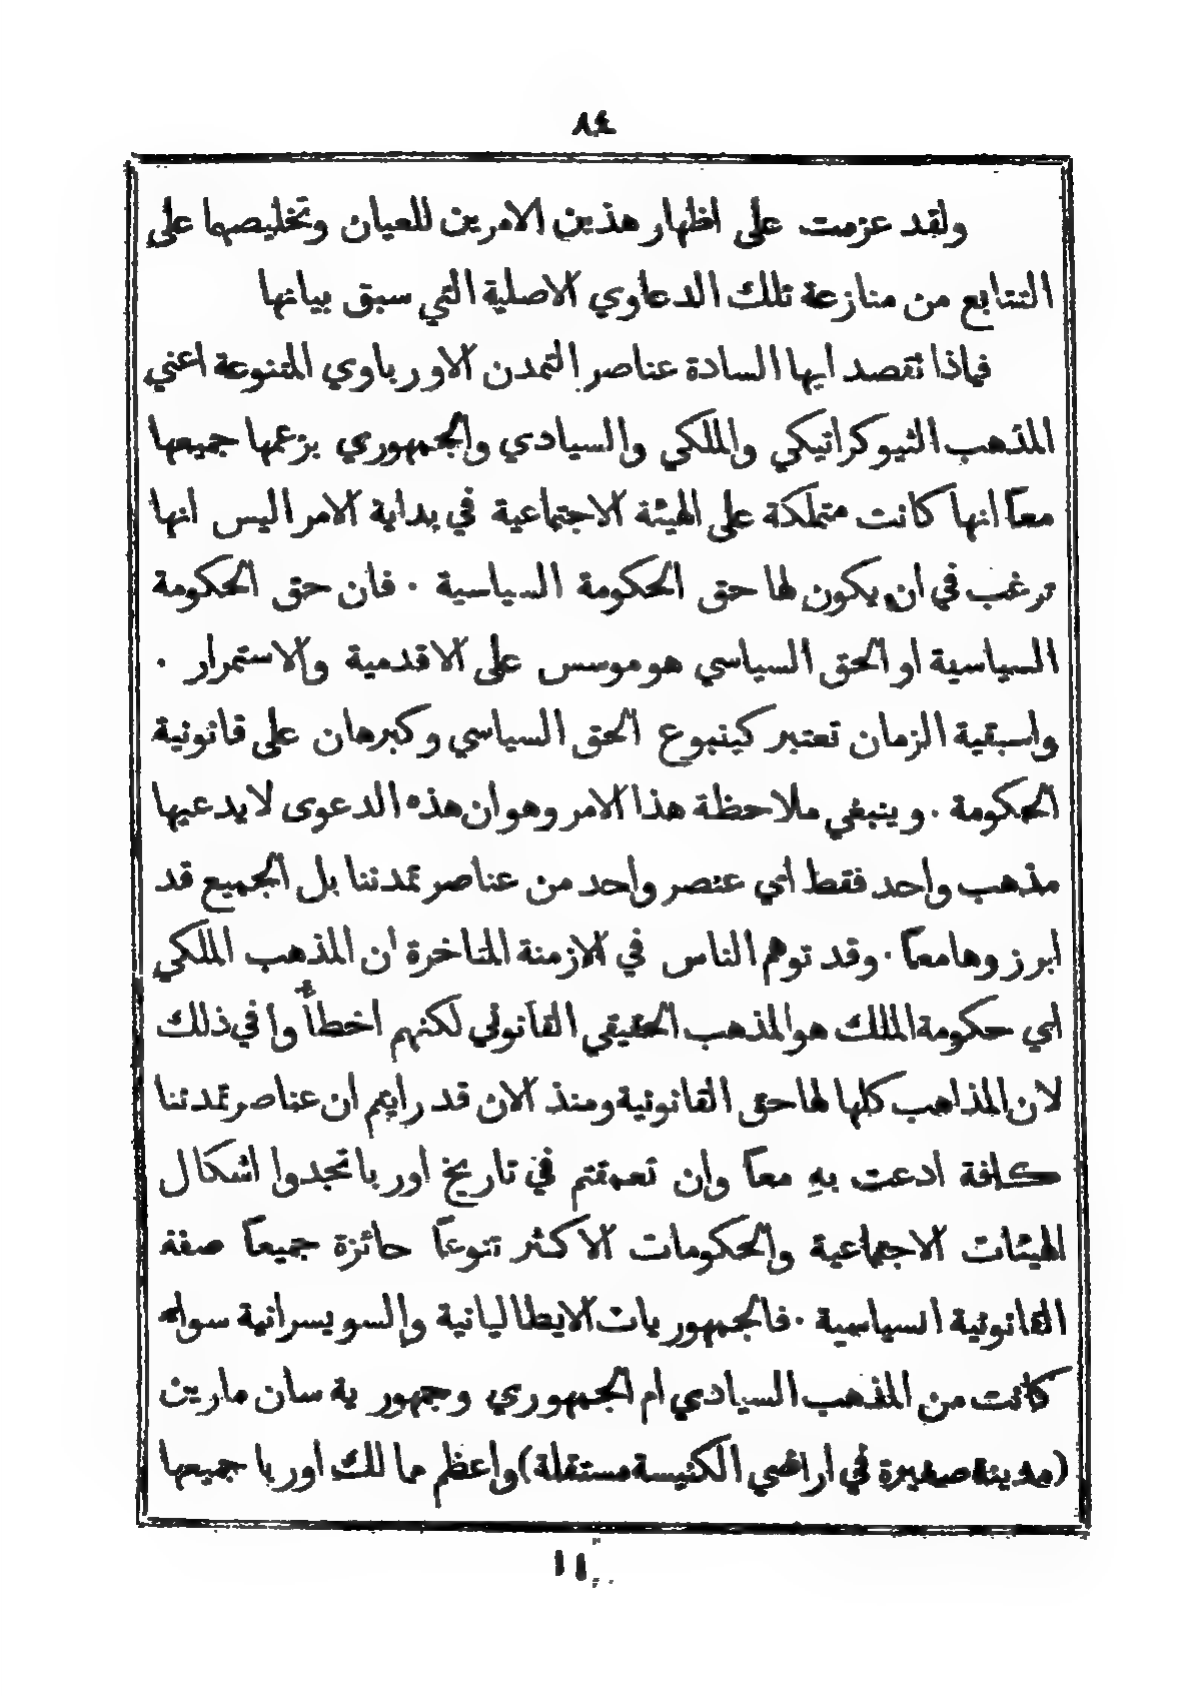 ٨٤
ولقد عزمت على اظهار هذين الامرين للعيان وتخليصهما على
التتابع من منازعة تلك الدعاوي الاصلية التي سبق بيانها
فماذا تقصد ايها السادة عناصر التمدن الاورباوي المتنوعة اعني
المذهب الثيوكراتيكي والملكي والسيادي والجمهوري بزعمها جميعها
معاً انها كانت متملكة على الهيئة الاجتماعية في بداية الامر اليس انها
ترغب في ان يكون لها حق الحكومة السياسية . فان حق الحكومة
السياسية او الحق السياسي هو موسس على الاقدمية والاستمرار .
واسبقية الزمان تعتبر كينبوع الحق السياسي وكبرهان على قانونية
الحكومة . وينبغي ملاحظة هذا الامر وهو ان هذه الدعوى لا يدعيها
مذهب واحد فقط اي عنصر واحد من عناصر تمدننا بل الجميع قد
ابرزوها معاً . وقد توهم الناس في الازمنة المتاخرة ان المذهب الملكي
اي حكومة الملك هو المذهب الحقيقي القانوني لكنهم اخطأوا في ذلك
لان المذاهب كلها لها حق القانونية ومنذ الان قد رايتم ان عناصر تمدننا
كافة ادعت بهِ معاً وان تعمقتم في تاريخ اوربا تجدوا اشكال
الهيئات الاجتماعية والحكومات الاكثر تنوعاً حائزة جميعاً صفة
القانونية السياسية . فالجمهوريات الايطاليانية والسويسرانية سواء
كانت من المذهب السيادي ام الجمهوري وجمهورية سان مارين
(مدينة صغيرة في اراضي الكنيسة مستقلة) واعظم ممالك اوربا جميعها
١١